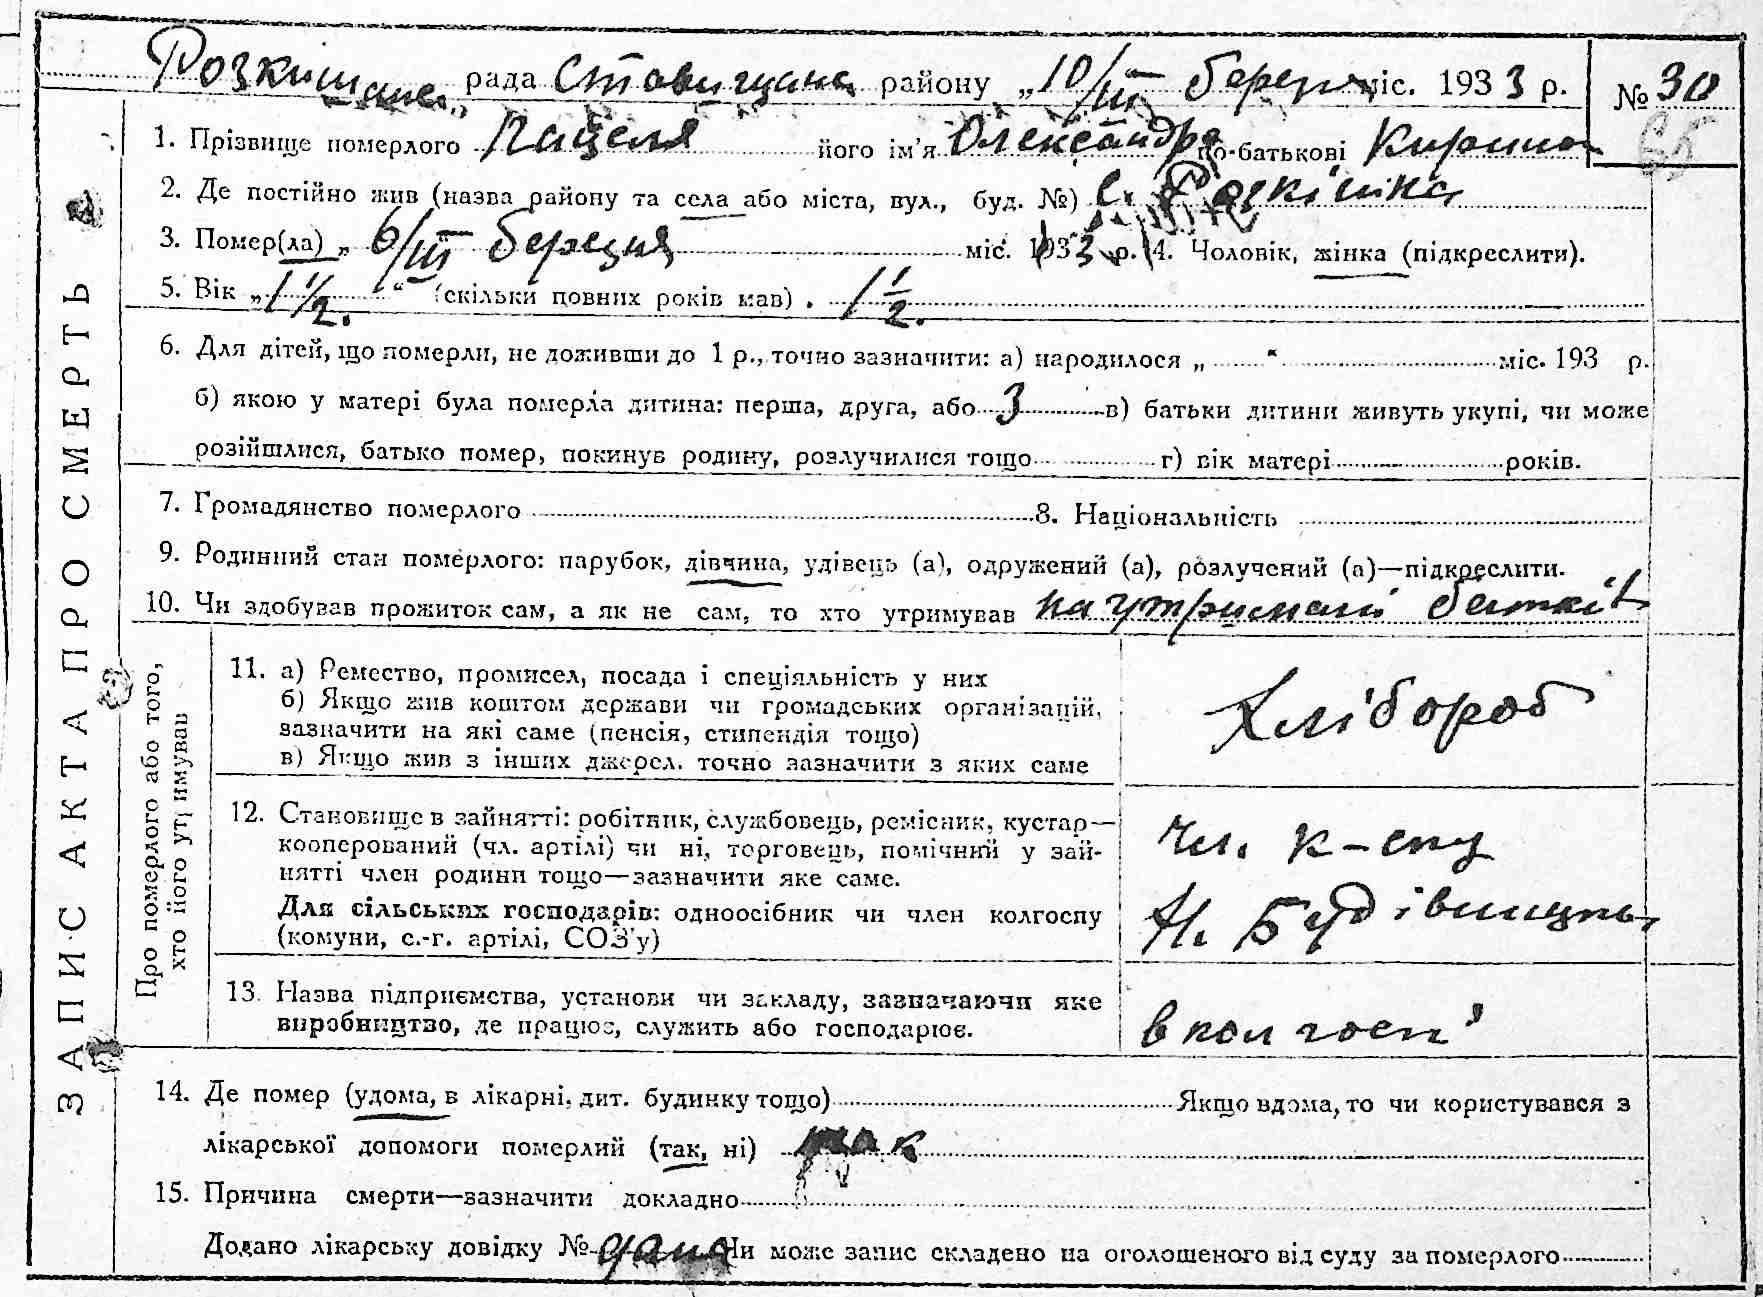 Розкишан. рада Ставищан. району „10/III березня міс. 1933 р. № 30
1. Прізвище померлого Пацеля його ім'я Олександра по-батькові
2. Де постійно жив (назва району та села або міста, вул., буд. №) с. Розкішна
3. Помер(ла) „ 6/III березня міс. 1933 р. 4. Чоловік, жінка (підкреслити).
5. Вік „1 1/2.“ (скільки повних років мав) . 1 1/2.
6. Для дітей, що померли, не доживши до 1 р., точно зазначити: а) народилося „ “ міс. 193 р.
б) якою у матері була померла дитина: перша, друга, або 3 в) батьки дитини живуть укупі, чи може
розійшлися, батько помер, покинув родину, розлучилися тощо г) вік матері років.
7. Громадянство померлого 8. Національність
9. Родинний стан померлого: парубок, дівчина, удівець (а), одружений (а), розлучений (а)—підкреслити.
10. Чи здобував прожиток сам, а як не сам, то хто утримував на утримані батьків
ЗАПИС АКТА ПРО СМЕРТЬ
Про померлого або того,
хто його утримував
11. а) Ремество, промисел, посада і спеціяльність у них
б) Якщо жив коштом держави чи громадських організацій,
зазначити на які саме (пенсія, стипендія тощо)
в) Якщо жив з інших джерел, точно зазначити з яких саме
Хлібороб
12. Становище в зайнятті: робітник, службовець, ремісник, кустар—
кооперований (чл. артілі) чи ні, торговець, помічний у зай-
нятті член родини тощо—зазначити яке саме.
Для сільських господарів: одноосібник чи член колгоспу
(комуни, с.-г. артілі, СОЗ'у)
Чл. к-спу
13. Назва підприємства, установи чи закладу, зазначаючи яке
виробництво, де працює, служить або господарює.
в колгоспі
14. Де помер (удома, в лікарні, дит. будинку тощо) Якщо вдома, то чи користувався з
лікарської допомоги померлий (так, ні) так
15. Причина смерти—зазначити докладно
Додано лікарську довідку № Чи може запис складено на оголошеного від суду за померлого